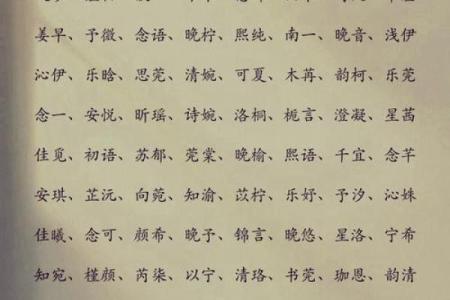 姜早、予微、念语、晚柠、熙纯、南一、晚音、浅伊
沁伊、乐晗、思莞、清婉、可夏、木苒、韵柯、乐莞
念一、安悦、昕瑶、诗婉、洛桐、栀言、澄凝、星茜
佳觅、初语、苏郁、莞棠、晚榆、熙语、千宜、念芊
安琪、芷沅、向菀、知渝、苡柠、乐妤、予汐、沁姝
佳曦、念可、颜希、晚予、锦言、晚悠、星洛、宁希
知宛、槿颜、芮柒、以宁、清珞、书莞、珈恩、韵清